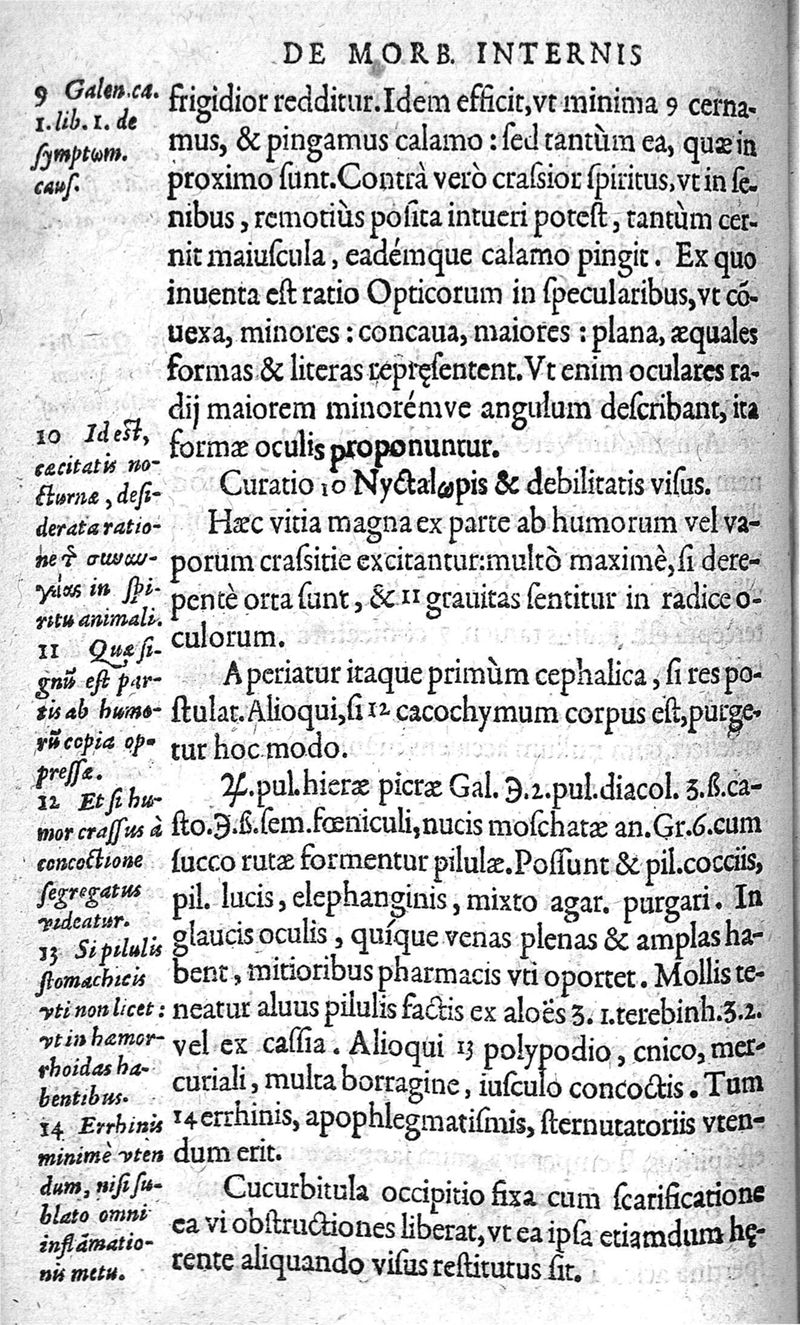 DE MORB. INTERNIS
9 Galen.ca.
1.lib. 1. de
symptωm.
cauſ.
frigidior redditur.Idem efficit,vt minima 9 cerna-
mus, & pingamus calamo : ſed tantùm ea, quæ in
proximo ſunt.Contrà verò craſſior ſpiritus,vt in ſe-
nibus , remotiùs poſita intueri poteſt , tantùm cer-
nit maiuſcula , eadémque calamo pingit . Ex quo
inuenta eſt ratio Opticorum in ſpecularibus,vt cõ-
uexa, minores : concaua, maiores : plana, æquales
formas & literas repręſentent.Vt enim oculares ra-
dij maiorem minorémve angulum deſcribant, ita
formæ oculis proponuntur.
Curatio 10 Nyctalωpis & debilitatis viſus.
Hæc vitia magna ex parte ab humorum vel va-
porum craſſitie excitantur:multò maximè,ſi dere-
pentè orta ſunt , & 11 grauitas ſentitur in radice o-
culorum.
Aperiatur itaque primùm cephalica , ſi res po-
ſtulat.Alioqui,ſi 12 cacochymum corpus eſt,purge-
tur hoc modo.
℞.pul.hieræ picræ Gal. ℈.2.pul.diacol. ʒ.ß.ca-
ſto.℈.ß.ſem.fœniculi,nucis moſchatæ an.Gr.6.cum
ſucco rutæ formentur pilulæ.Poſſunt & pil.cocciis,
pil. lucis , elephanginis , mixto agar. purgari . In
glaucis oculis , quíque venas plenas & amplas ha-
bent , mitioribus pharmacis vti oportet . Mollis te-
neatur aluus pilulis factis ex aloës ʒ. 1.terebinh.ʒ.2.
vel ex caſſia . Alioqui 13 polypodio , cnico, mer-
curiali , multa borragine , iuſculo concoctis . Tum
14 errhinis, apophlegmatiſmis, ſternutatoriis vten-
dum erit.
Cucurbitula occipitio fixa cum ſcarificatione
ea vi obſtructiones liberat,vt ea ipſa etiamdum hę-
rente aliquando viſus reſtitutus ſit.
10 Id eſt,
cæcitatis no-
cturnæ , deſi-
derata ratio-
ne τ͂ συναυ-
γείας in ſpi-
ritu animali.
11 Quæ ſi-
gnũ eſt par-
tis ab humo-
rũ copia op-
preſſæ.
12 Et ſi hu-
mor craſſus à
concoctione
ſegregatus
videatur.
13 Si pilulis
ſtomachicis
vti non licet :
vt in hæmor-
rhoidas ha-
bentibus.
14 Errhinis
minimè vten
dum, niſi ſu-
blato omni
inflāmatio-
nis metu.